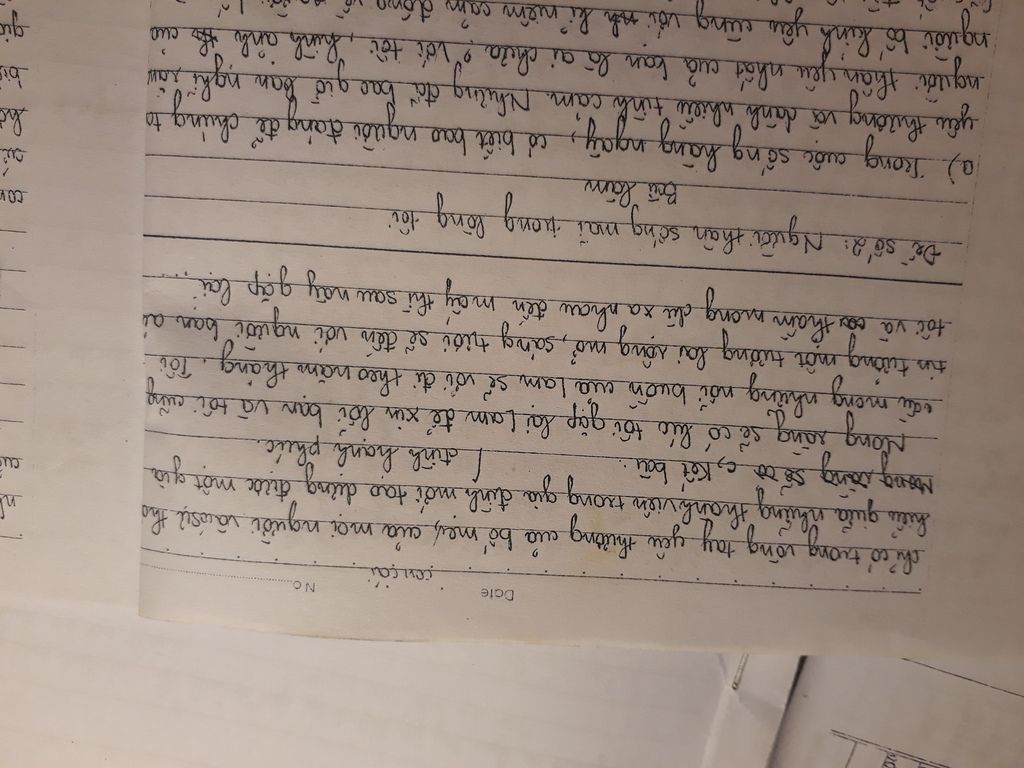 Date No
con cái
chỉ có trong vòng tay yêu thương của bố mẹ, của mọi người và sự thấ
hiểu giữa những thành viên trong gia đình mới tạo dựng được một gia
đình hạnh phúc.
c, Kết bài:
Mong rằng sẽ có lúc tôi gặp lại Lam để xin lỗi bạn và tôi cũng
cầu mong những nỗi buồn của Lam sẽ vơi đi theo năm tháng. Tôi
tin tưởng một tương lai rộng mở, sáng tươi sẽ đến với người bạn
tôi và thầm mong dù xa nhau đến mấy thì sau này gặp lại....
Đề số 2: Người thân sống mãi trong lòng tôi
Bài làm
a) Trong cuộc sống hàng ngày, có biết bao người đáng để chúng ta
yêu thương và dành nhiều tình cảm. Nhưng đã bao giờ bạn nghĩ rằng
người thân yêu nhất của bạn là ai chưa? Với tôi, hình ảnh của
người bố kính yêu cùng với kỉ niệm cảm động về